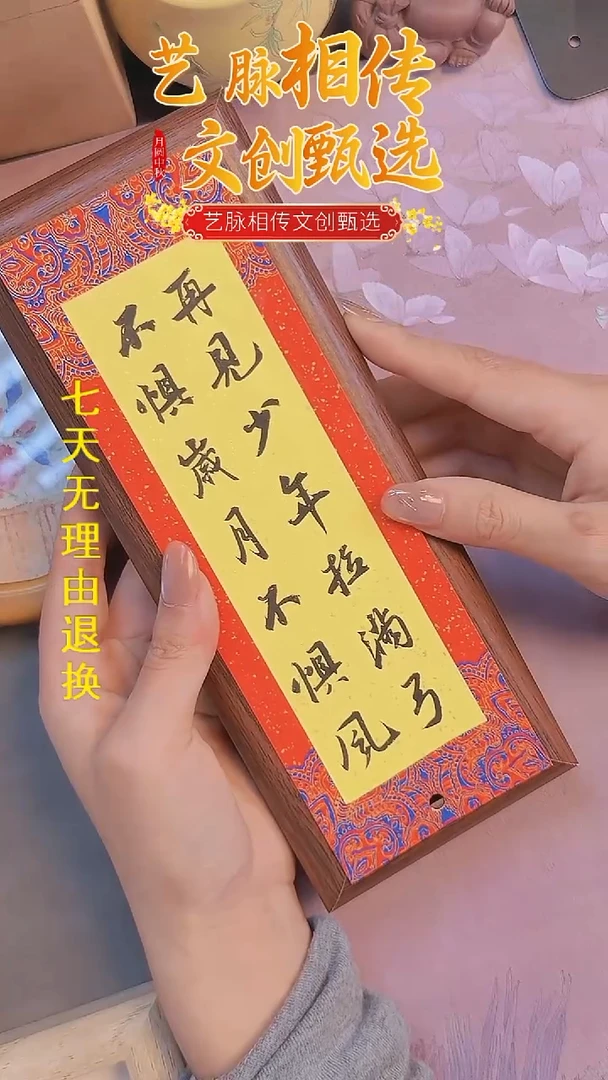 艺脉相传
文创甄选
月圆中秋
艺脉相传文创甄选
再见少年拉满弓
不惧歲月不惧风
七天无理由退换